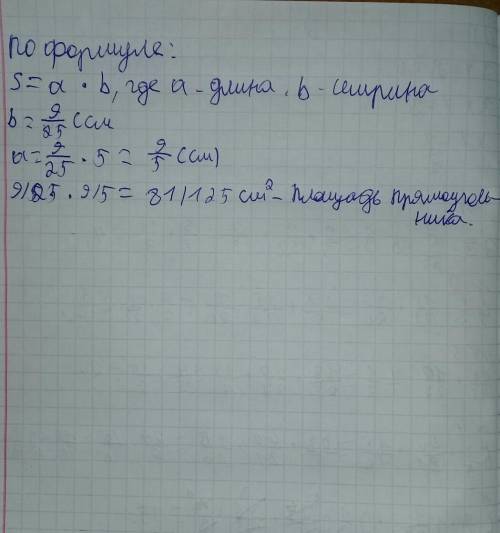 По формуле:
S = a · b, где a - длина, b - ширина
b = 9/25 (см
a = 9/25 · 5 = 9/5 (см)
9/25 · 9/5 = 81/125 см² - площадь прямоуголь-
ника.